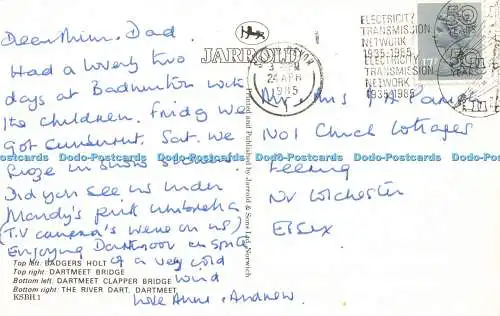 Dear Mim. Dad.
Had a lovely two
days at Badminton with
the children. Friday we
got sunburnt. Sat. we
froze in snow
Did you see us under
Mandy's pink umbrella
(T.V camera's were on us)
Enjoying Dartmoor in spite
of a very cold
wind
love Anne. Andrew.
Top left: BADGERS HOLT
Top right: DARTMEET BRIDGE
Bottom left: DARTMEET CLAPPER BRIDGE
Bottom right: THE RIVER DART, DARTMEET
KSBH.1
JARROLD
Printed and Published by Jarrold & Sons Ltd, Norwich
3 PM
24 APR
1985
ELECTRICITY
TRANSMISSION
NETWORK
1935-1985
50
YEARS
ELECTRICITY
TRANSMISSION
NETWORK
1935-1985
YEARS
17P
Mr. Mrs
No 1 Church Cottages
Feering
Nr Colchester
Essex
Dodo-Postcards Dodo-Postcards Dodo-Postcards Dodo-Postcards Dodo-Postcards Dodo-Postcards